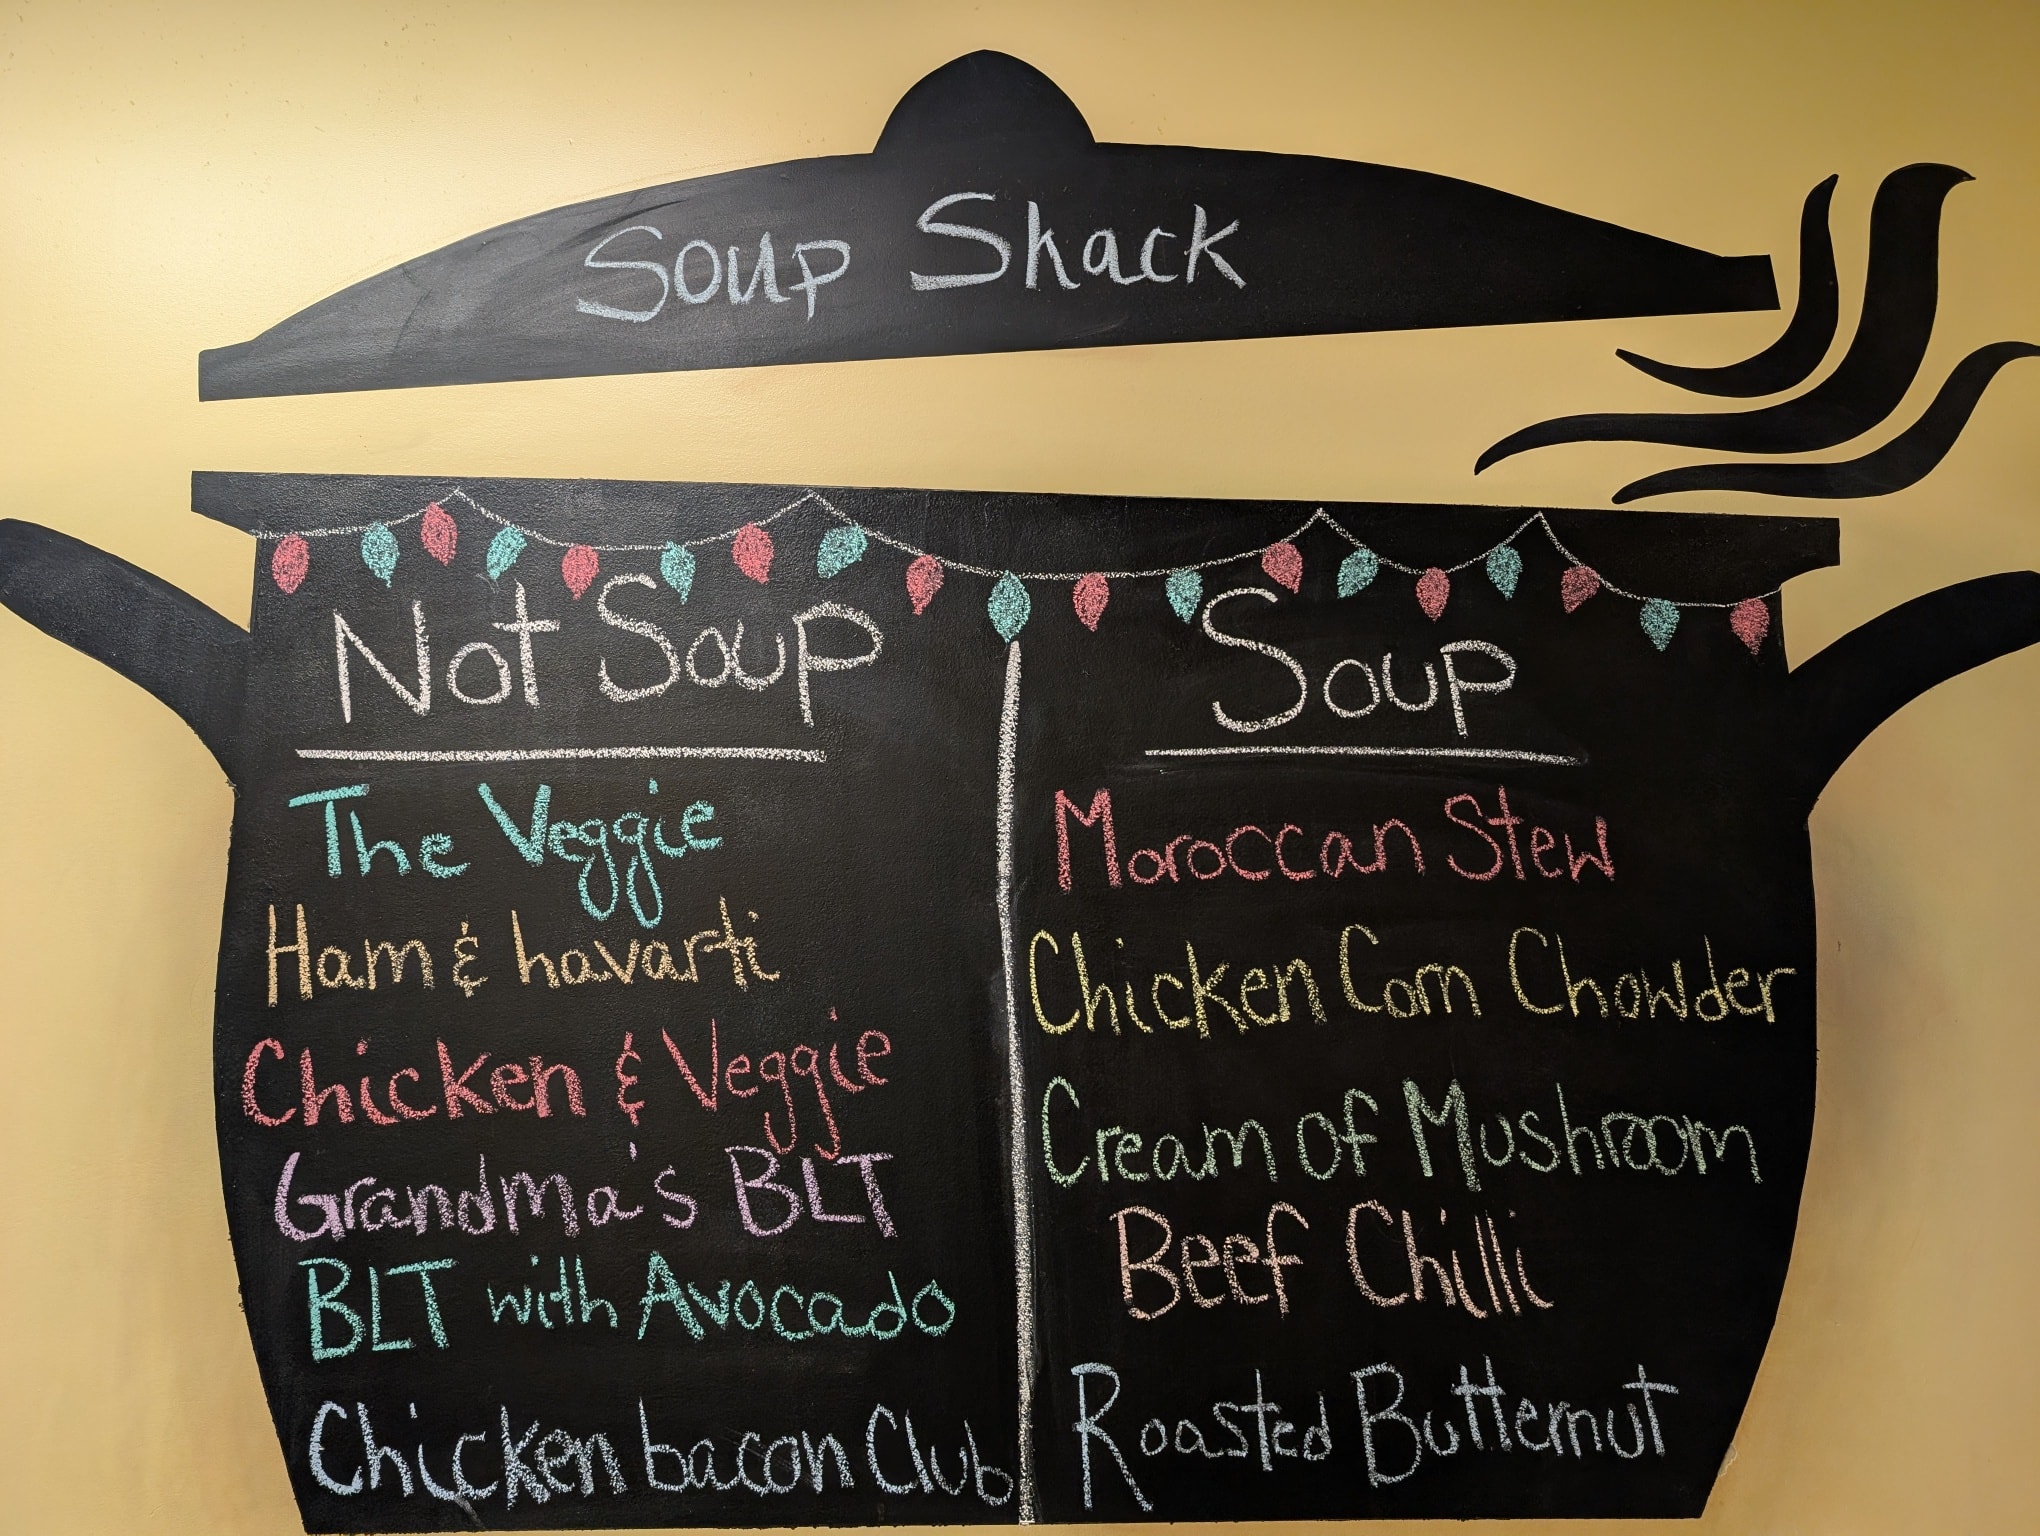 Soup Shack
Not Soup
The Veggie
Ham & havarti
Chicken & Veggie
Grandma's BLT
BLT with Avocado
Chicken bacon Club
Soup
Moroccan Stew
Chicken Corn Chowder
Cream of Mushroom
Beef Chilli
Roasted Butternut